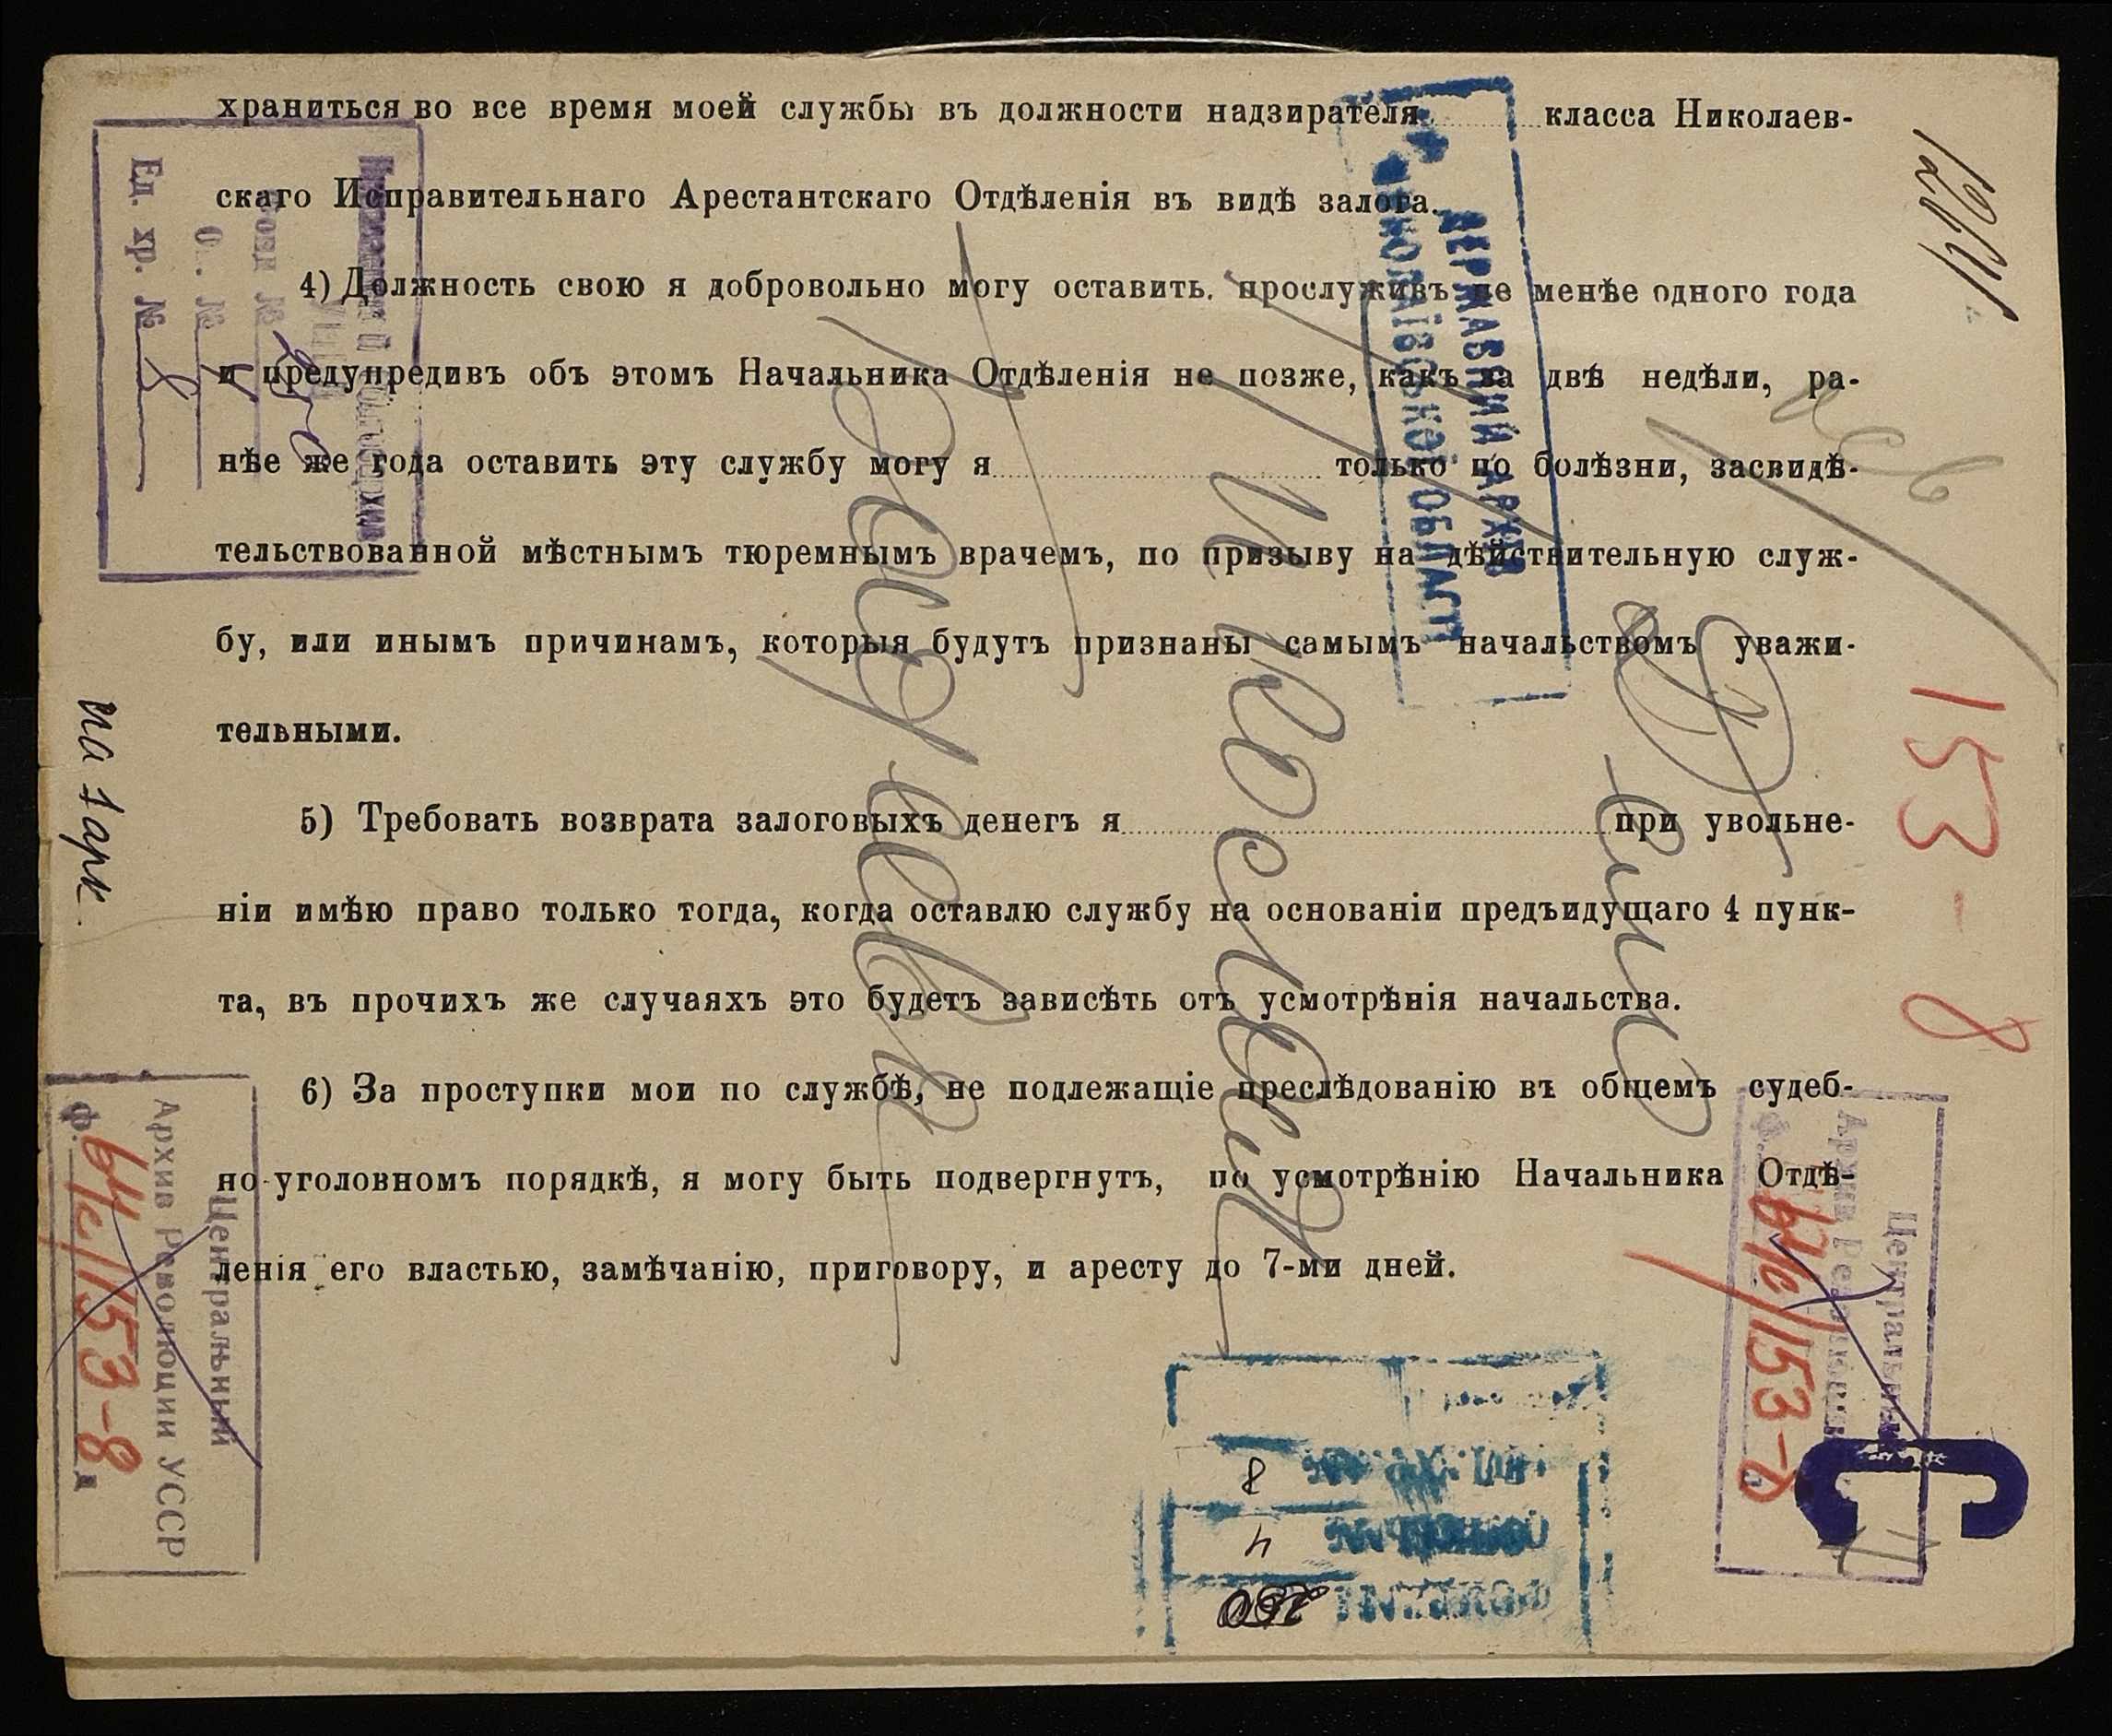 храниться во все время моей службы въ должности надзирателя класса Николаев-
скаго Исправительнаго Арестантскаго Отдѣленія въ видѣ залога.
4) Должность свою я добровольно могу оставить. прослуживъ не менѣе одного года
и предупредивъ объ этомъ Начальника Отдѣленія не позже, какъ за двѣ недѣли, ра-
нѣе же года оставить эту службу могу я только по болѣзни, засвидѣ-
тельствованной мѣстнымъ тюремнымъ врачемъ, по призыву на дѣйствительную служ-
бу, или инымъ причинамъ, которыя будутъ признаны самымъ начальствомъ уважи-
тельными.
5) Требовать возврата залоговыхъ денегъ я при увольне-
ніи имѣю право только тогда, когда оставлю службу на основаніи предъидущаго 4 пунк-
та, въ прочихъ же случаяхъ это будетъ зависѣть отъ усмотрѣнія начальства.
6) За проступки мои по службѣ, не подлежащіе преслѣдованію въ общемъ судеб-
но-уголовномъ порядкѣ, я могу быть подвергнутъ, по усмотрѣнію Начальника Отдѣ-
ленія его властью, замѣчанію, приговору, и аресту до 7-ми дней.
Ед. хр. № 8
О.. № 
ДЕРЖАВНИЙ АРХІВ
МИКОЛАЇВСЬКОЇ ОБЛАСТІ
153-8
на 1 арк.
Центральный
Архив Революции УССР
Ф. 64с/153-8 д
Центральный
Архив Революции
Ф. 64с/153-8
8
4